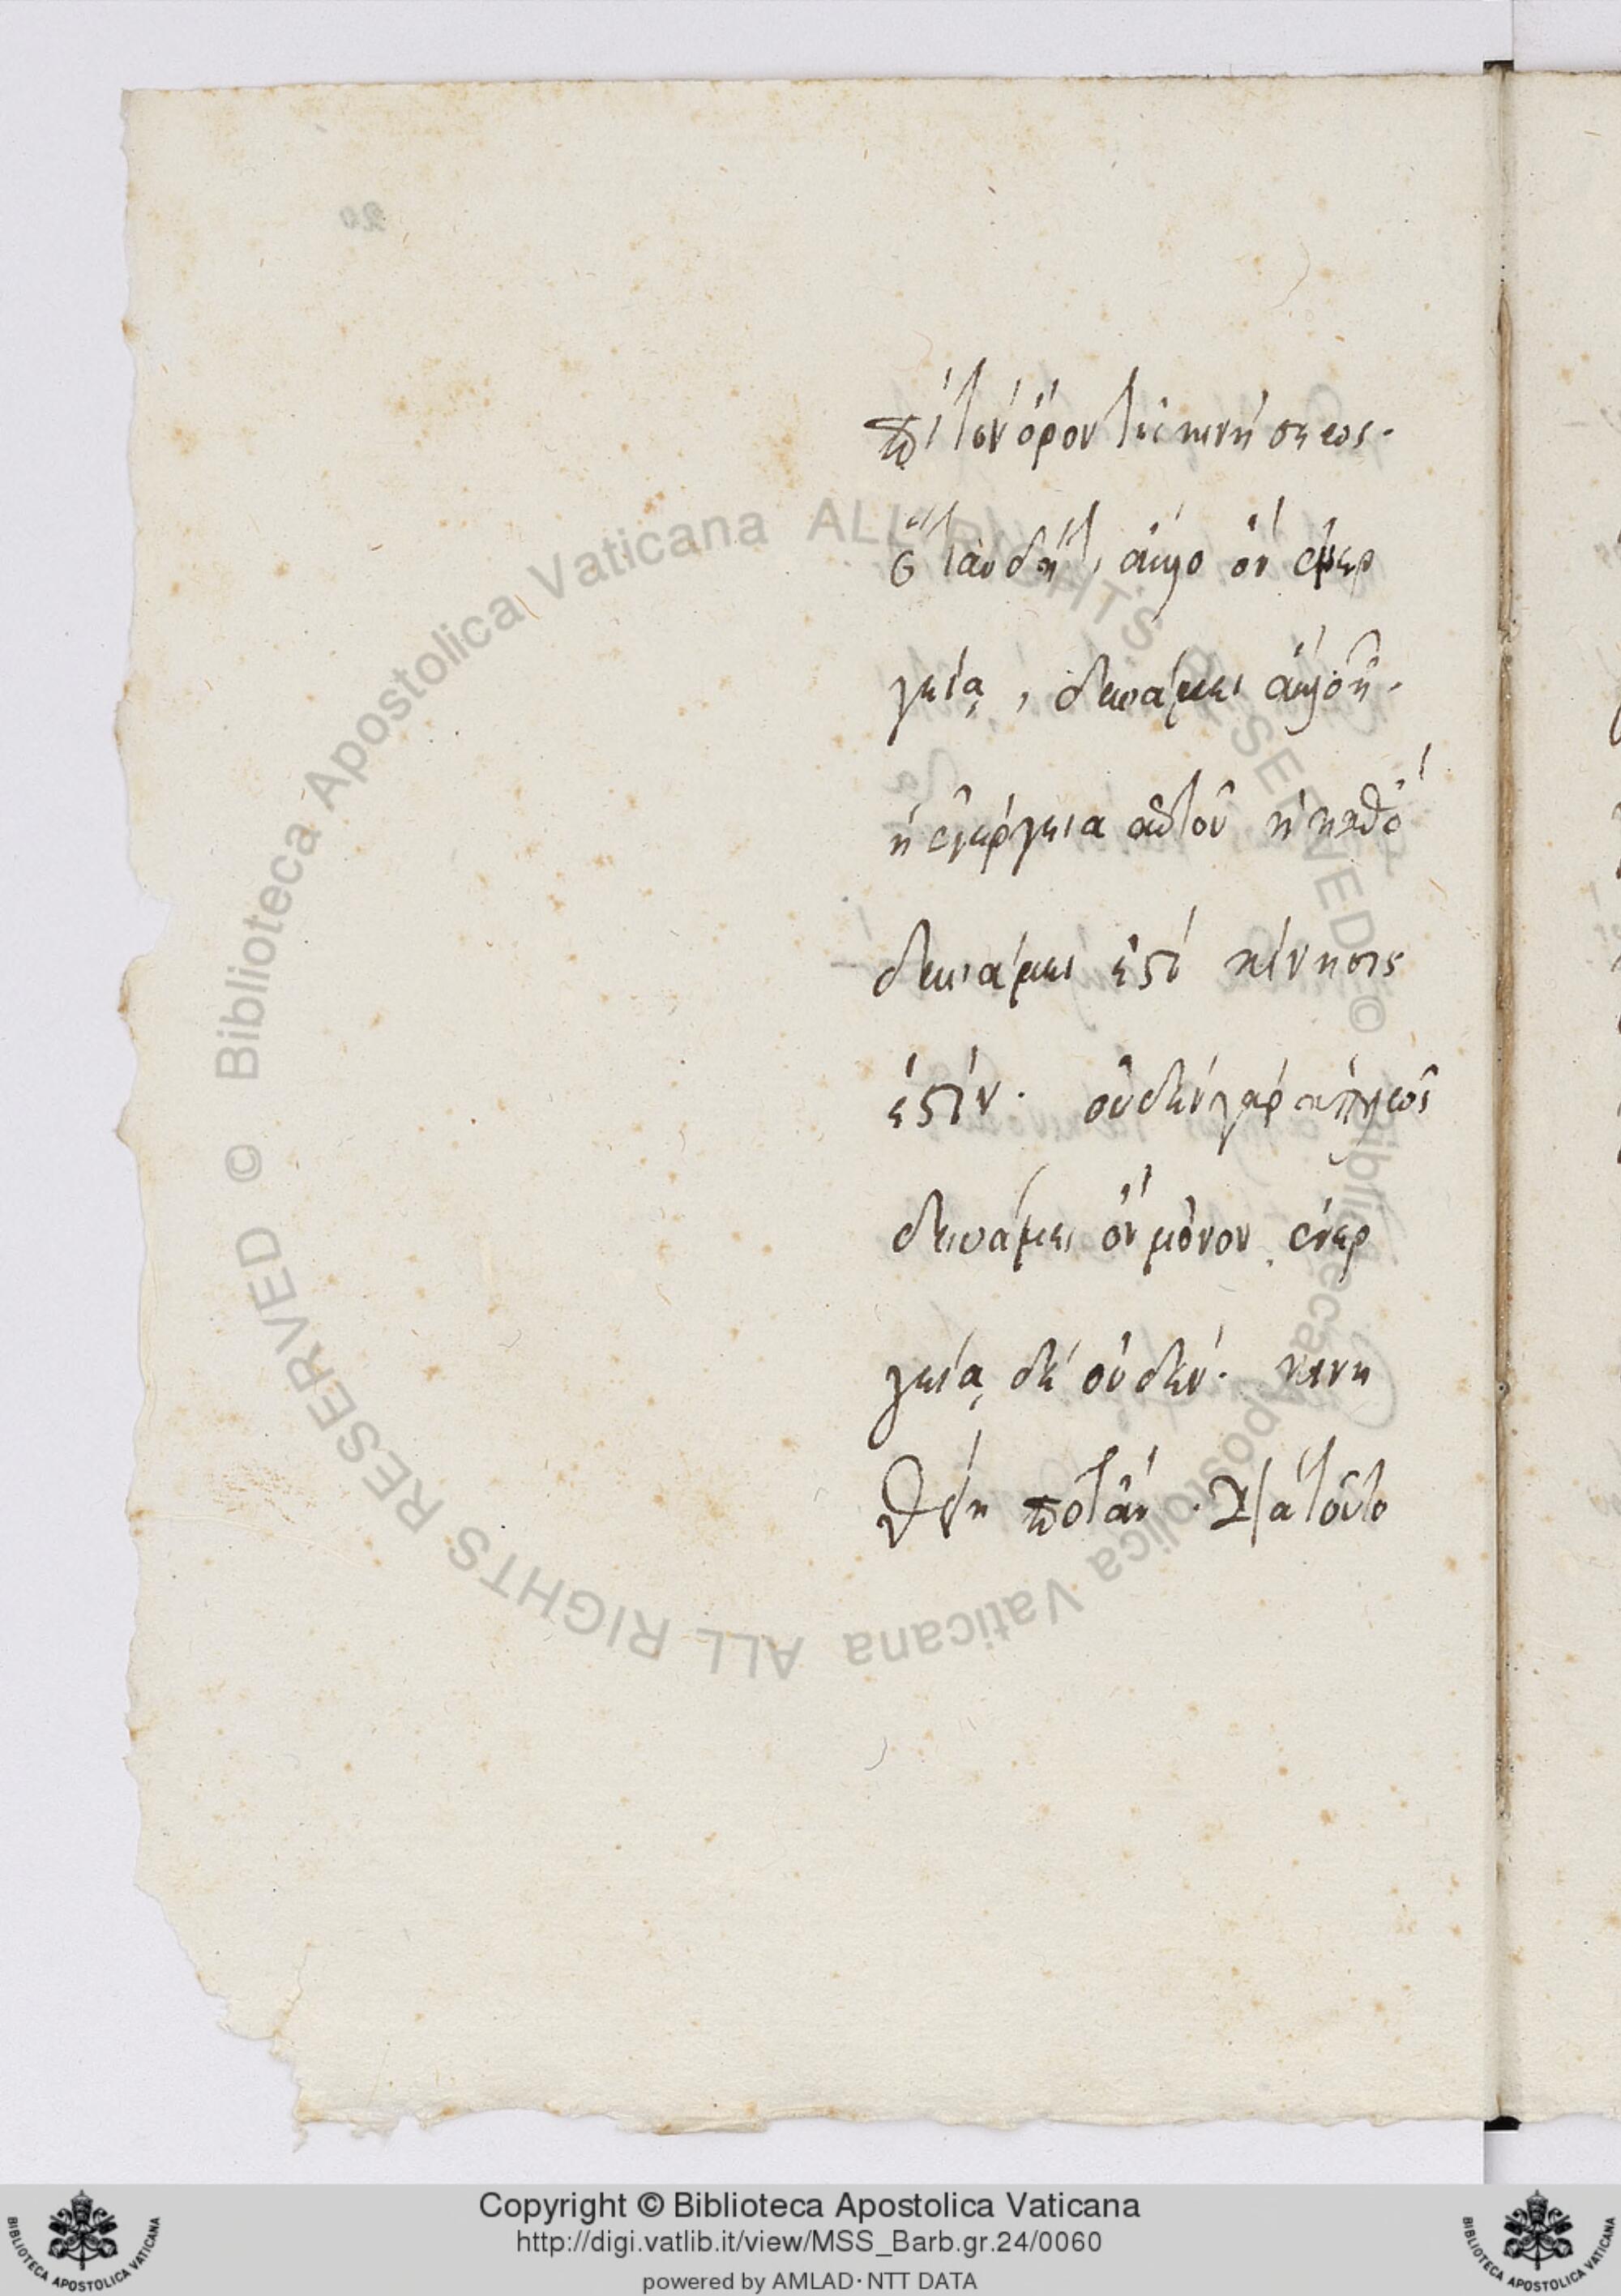 περὶ τὸν ὅρον τῆς κινήσεως.
ὅταν δή τι, ἄγον ὂν ἐνερ
γείᾳ, δυνάμει
ἡ ἐνέργεια αὐτοῦ ἡ καθὸ
δυνάμει ἐστὶ κίνησις
ἐστίν. οὐδὲν γὰρ
δυνάμει ὂν μόνον ἐνερ
γείᾳ δὲ οὐδὲν. κινη
θείη ποτ' ἄν. διὰ τοῦτο
20
Biblioteca Apostolica Vaticana ALL RIGHTS RESERVED ©
Biblioteca Apostolica Vaticana ALL RIGHTS RESERVED ©
Copyright © Biblioteca Apostolica Vaticana
http://digi.vatlib.it/view/MSS_Barb.gr.24/0060
powered by AMLAD·NTT DATA
BIBLIOTECA APOSTOLICA VATICANA
BIBLIOTECA APOSTOLICA VATICANA